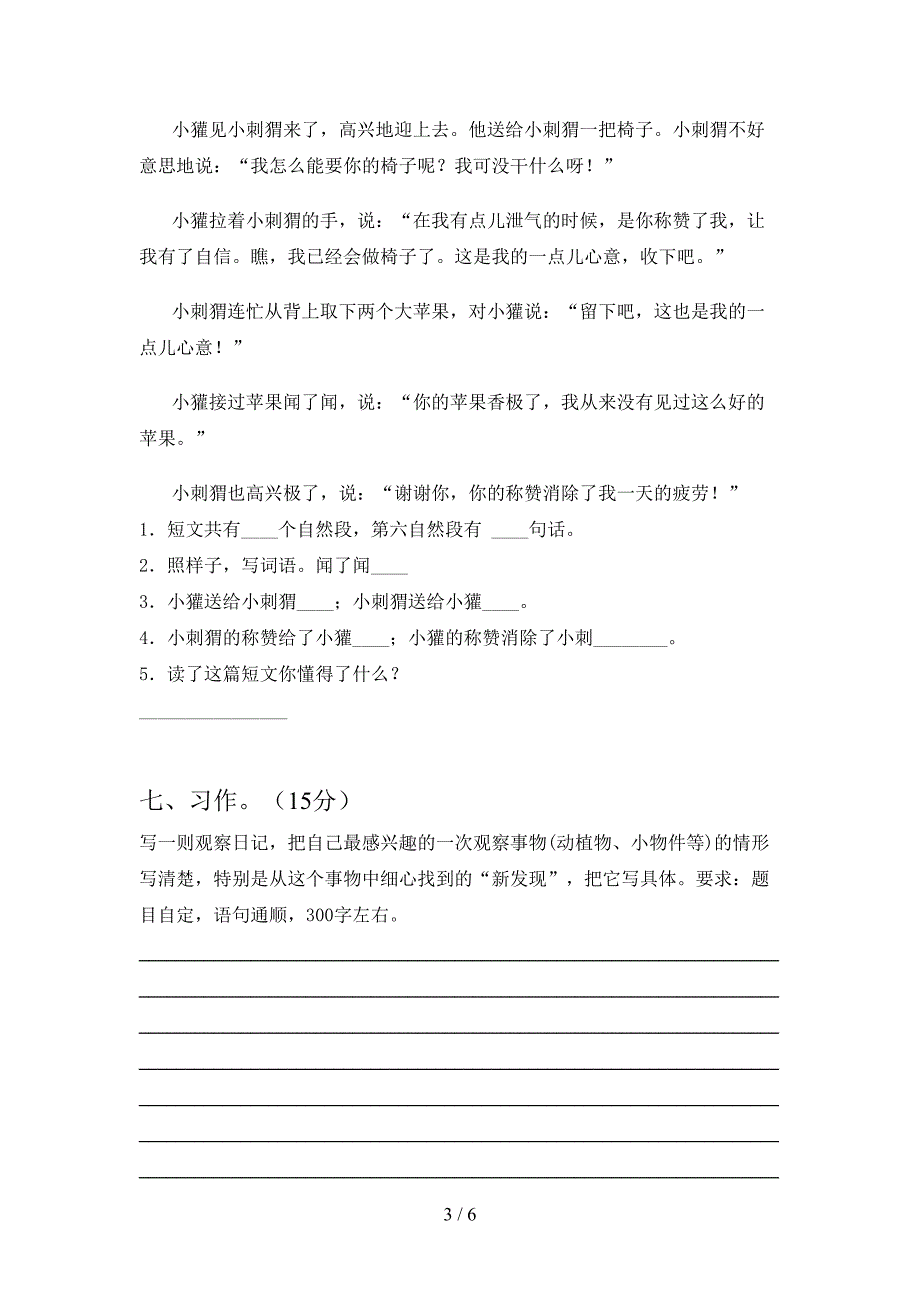 小獾见小刺猬来了，高兴地迎上去。他送给小刺猬一把椅子。小刺猬不好
意思地说：“我怎么能要你的椅子呢？我可没干什么呀！”
小獾拉着小刺猬的手，说：“在我有点儿泄气的时候，是你称赞了我，让
我有了自信。瞧，我已经会做椅子了。这是我的一点儿心意，收下吧。”
小刺猬连忙从背上取下两个大苹果，对小獾说：“留下吧，这也是我的一
点儿心意！”
小獾接过苹果闻了闻，说：“你的苹果香极了，我从来没有见过这么好的
苹果。”
小刺猬也高兴极了，说：“谢谢你，你的称赞消除了我一天的疲劳！”
1．短文共有____个自然段，第六自然段有 ____句话。
2．照样子，写词语。闻了闻____
3．小獾送给小刺猬____；小刺猬送给小獾____。
4．小刺猬的称赞给了小獾____；小獾的称赞消除了小刺________。
5．读了这篇短文你懂得了什么？
________________
七、习作。（15分）
写一则观察日记，把自己最感兴趣的一次观察事物(动植物、小物件等)的情形
写清楚，特别是从这个事物中细心找到的“新发现”，把它写具体。要求：题
目自定，语句通顺，300字左右。
3 / 6